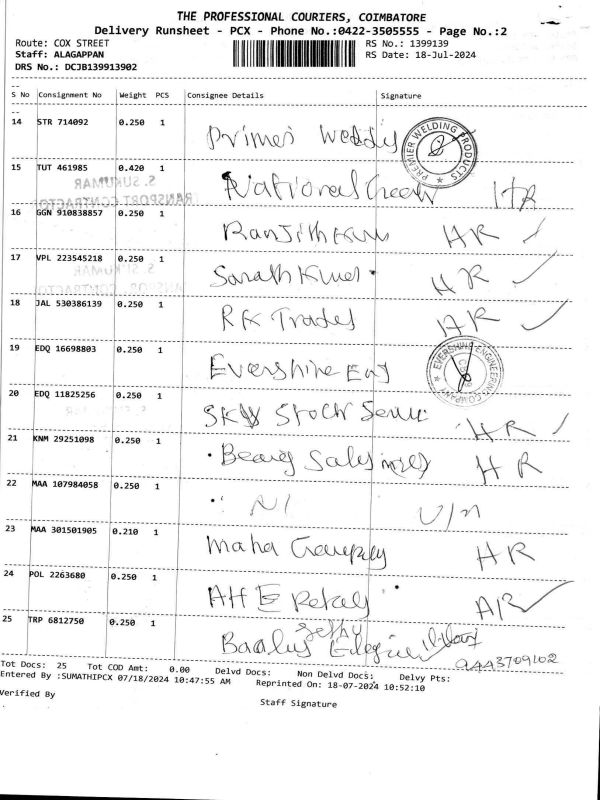 THE PROFESSIONAL COURIERS, COIMBATORE
Delivery Runsheet - PCX - Phone No.:0422-3505555 - Page No.:2
Route: COX STREET RS No.: 1399139
Staff: ALAGAPPAN RS Date: 18-Jul-2024
DRS No.: DCJB139913902
S No Consignment No Weight PCS Consignee Details Signature
14 STR 714092 0.250 1 PREMIER WELDING PRODUCTS
15 TUT 461985 0.420 1 National HR
S. SUKUMAR
TRANSPORT CONTRACTO
16 GGN 910838857 0.250 1 Ranjith Kum HR
17 VPL 223545218 0.250 1 Sarath Kumer HR
S. SUKUMAR
18 JAL 530386139 0.250 1 RK Trades HR
19 EDQ 16698803 0.250 1 Evershine Eng EVERSHINE ENGINEERING COMPANY
20 EDQ 11825256 0.250 1 Stock HR
21 KNM 29251098 0.250 1 Sales HR
22 MAA 107984058 0.250 1
23 MAA 301501905 0.210 1 Maha HR
24 POL 2263680 0.250 1 HR
25 TRP 6812750 0.250 1
Tot Docs: 25 Tot COD Amt: 0.00 Delvd Docs: Non Delvd Docs: Delvy Pts:
Entered By :SUMATHIPCX 07/18/2024 10:47:55 AM Reprinted On: 18-07-2024 10:52:10
Verified By
Staff Signature